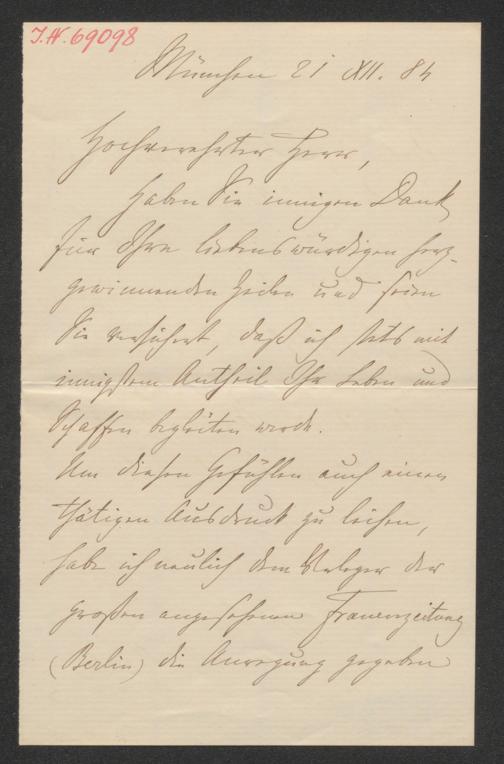 J.N. 69098
München 21 XII. 84
Hochverehrter Herr,
Haben Sie innigen Dank
für Ihre liebenswürdigen herz-
gewinnenden Zeilen und seien
Sie versichert, daß ich stets mit
innigstem Antheil Ihr Leben und
Schaffen begleiten werde.
Um diesen Gefühlen auch einen
thätigen Ausdruck zu leihen,
habe ich neulich dem Verleger der
großen angesehenen Frauenzeitung
(Berlin) die Anregung gegeben